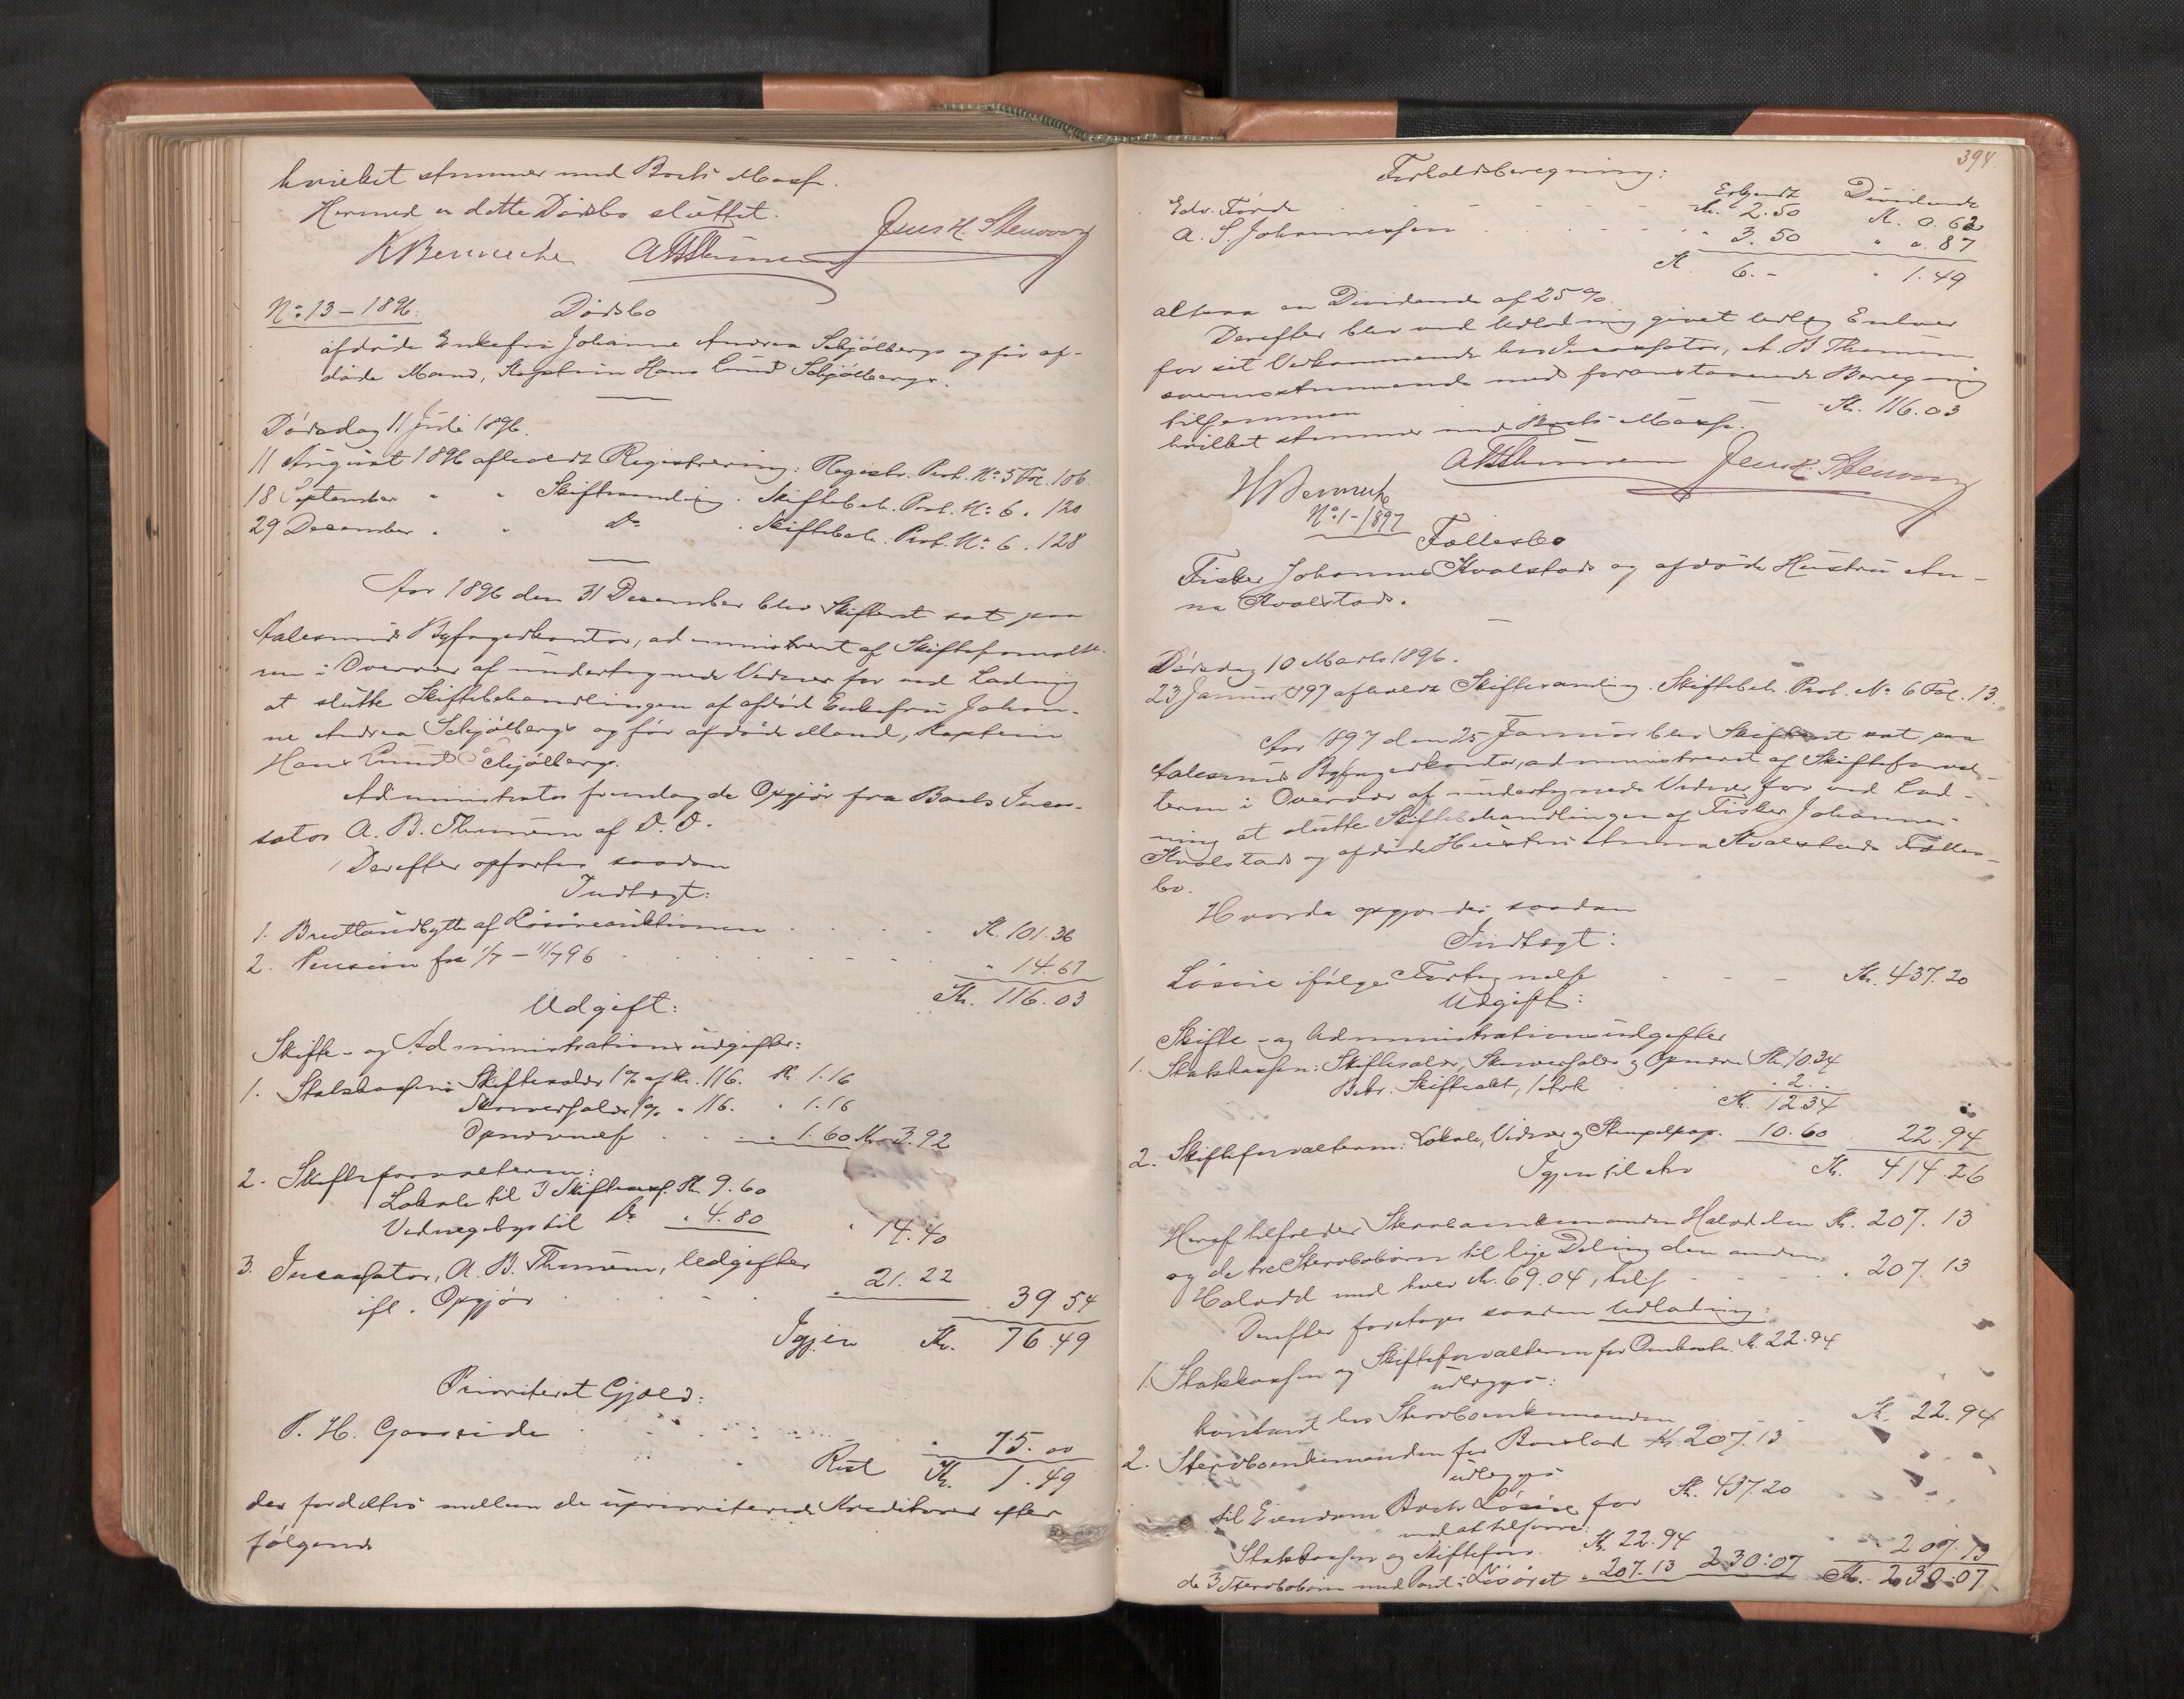 hvilket stemmer med Boets Masse.
Hermed er dette Dødsbo sluttet.
Jens H. Stenvorg
K Benneche A B Thunem
No 13 – 1896. Dødsbo
afdøde Enkefru Johanne Andrea Schjølbergs og før af-
døde Mand, Kaptein Hans Lund Schjølbergs.
Dødsdag 11 Juli 1896.
11 August 1896 afholdt Registrering. Registr. Prot. No 5 Fol. 106.
18 September " " Skiftesamling. Skiftebeh. Prot. No 6 " 120
29 December " " Do. Skiftebeh. Prot. No 6 " 128
Aar 1896 den 31 December blev Skifteret sat paa
Aalesunds Byfogedkontor, administreret af Skifteforvalte-
ren i Overvær af undertegnede Vidner for ved Lodning
at slutte Skiftebehandlingen af afdød Enkefru Johan-
ne Andrea Schjølbergs og før afdøde Mand, Kaptein
Hans Lund Schjølbergs.
Administrator fremlagde Opgjør fra Boets Incas-
sator A. B. Thunem af D. D.
Derefter opførtes saadan
Indtægt:
1. Bruttoudbytte af Løsøreauktionen Kr. 101.36
2. Pension fra 1/7 – 11/7 96 " 14.67
Kr. 116.03
Udgift:
Skifte- og Administrationsudgifter:
1. Statskassen: Skiftesalær 1% af Kr. 116. Kr. 1.16
Skriversalær 1% " 116. " 1.16
Opnævnelse " 1.60 Kr. 3.92
2. Skifteforvalteren:
Lokale til 3 Skiftesaml. Kr. 9.60
Vidnegebyr til Do " 4.80 " 14.40
3. Incassator, A. B. Thunem, Udgifter
ifl. Opgjør " 21.22 " 39.54
Igjen Kr. 76.49
Prioriteret Gjæld:
P. H. Gaaseide " 75.00
Rest Kr. 1.49
der fordeltes mellem de uprioriterede Kreditorer efter
følgende
394
Forholdsberegning:
Erkjendt Dividende
Edv. Førde Kr. 2.50 Kr. 0.62
A. S. Johannessen " 3.50 " 0.87
Kr. 6.- " 1.49
altsaa en Dividende af 25%.
Derefter blev ved Udlodning givet Udlæg Enhver
for sit Vedkommende hos Incassator, A. B. Thunem
overensstemmende med foranstaaende Beregning
tilsammen Kr. 116.03
hvilket stemmer med Boets Masse.
A B Thunem Jens H. Stenvorg
K Benneche
No 1 – 1897
Fællesbo
Fisker Johannes Kvalstads og afdøde Hustru An-
na Kvalstads.
Dødsdag 10 Marts 1896.
23 Januar 1897 afholdt Skiftesamling. Skiftebeh. Prot. No 6 Fol. 13.
Aar 1897 den 25 Januar blev Skifteret sat paa
Aalesunds Byfogedkontor, administreret af Skifteforval-
teren i Overvær af undertegnede Vidner for ved Lod-
ning at slutte Skiftebehandlingen af Fisker Johannes
Kvalstads og afdøde Hustru Anna Kvalstads Fælles-
bo.
Hvorda opgjordes saadan
Indtægt:
Løsøre ifølge Fortegnelse Kr. 437.20
Udgift:
Skifte- og Administrationsudgifter
1. Statskassen: Skiftesalær, Skriversalær og Opnævn. Kr. 10.34
Beh. Skifteakt, 1 Ark " 2. -
Kr. 12.34
2. Skifteforvalteren: Lokale, Vidner og Stempelpap. 10.60 22.94
Igjen til Arv Kr. 414.26
Heraf tilfalder Stervboenkemanden Halvdelen Kr. 207.13
og de tre Stervbobørn til lige Deling den anden
Halvdel med hver Kr. 69.04, tils. " 207.13
Derefter foretoges saadan Udlodning:
1. Statskassen og Skifteforvalteren for Omkostn. Kr. 22.94
udlægges:
kontant hos Stervboenkemanden Kr. 22.94
2. Stervboenkemanden for Boeslod Kr. 207.13
udlægges
til Eiendom Boets Løsøre for Kr. 437.20
mod at tilsvare:
Statskassen og Skifteforv. Kr. 22.94 " 207.13
de 3 Stervbobørn med Pant i Løsøret " 207.13 230.07 Kr. 230.07